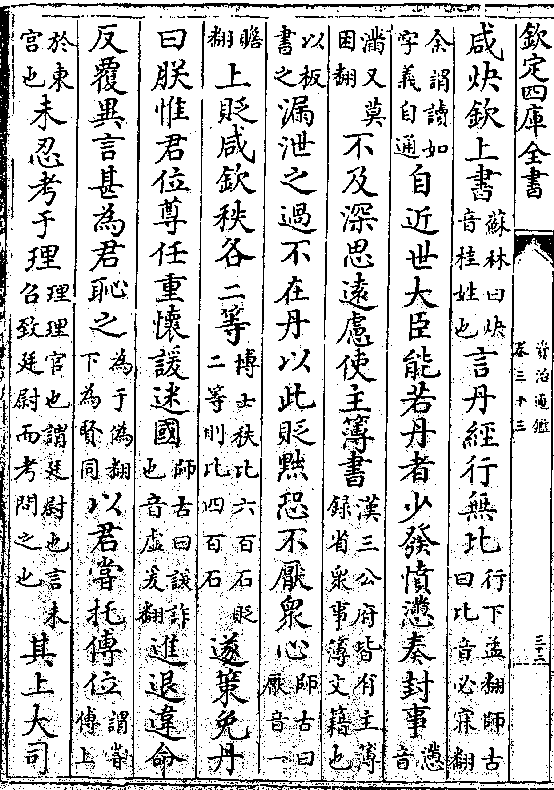 欽定四庫全書
資治通鑑
卷三十三
咸炔欽上書蘇林曰炔音桂姓也言丹經行無比行下孟翻師古曰比音必寐翻
余謂讀如字義自通自近世大臣能若丹者少發憤懣奏封事懣音
滿又莫困翻不及深思遠慮使主簿書漢三公府皆有主簿録省衆事簿文籍也
以板書之漏泄之過不在丹以此貶黜恐不厭衆心師古曰厭音一
瞻翻上貶咸欽秩各二等博士秩比六百石貶二等則比四百石遂策免丹
曰朕惟君位尊任重懷諼迷國師古曰諼詐也音虛爰翻進退違命
反覆異言甚為君恥之為于偽翻下為賢同以君嘗托傅位謂嘗傅上
於東宫也未忍考于理理理官也謂廷尉也言未召致廷尉而考問之也其上大司